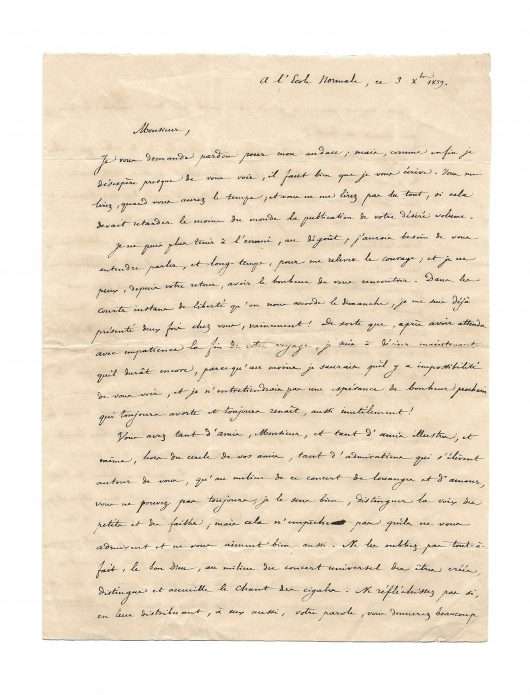 A l'Ecole Normale, ce 3 Xbre 1839.
Monsieur,
Je vous demande pardon pour mon audace ; mais, comme enfin je
désespère presque de vous voir, il faut bien que je vous écrive. Vous me
lirez, quand vous aurez le temps, et vous ne me lirez pas du tout, si cela
devait retarder le moins du monde la publication de votre désiré volume.
Je ne puis plus tenir à l'ennui, au dégoût, j'aurais besoin de vous
entendre parler, et long-temps, pour me relever le courage, et je ne
peux, depuis votre retour, avoir le bonheur de vous rencontrer. Dans les
courts instans de liberté qu'on nous accorde le dimanche, je me suis déjà
présenté deux fois chez vous, vainement ! De sorte que, après avoir attendu
avec impatience la fin de votre voyage, j'en suis à désirer maintenant
qu'il durât encore, parcequ'au moins je saurais qu'il y a impossibilité
de vous voir, et je n'entretiendrais pas une espérance de bonheur prochain
qui toujours avorte et toujours renaît, aussi inutilement !
Vous avez tant d'amis, Monsieur, et tant d'amis illustres, et
même, hors du cercle de vos amis, tant d'admirations qui s'élèvent
autour de vous, qu'au milieu de ce concert de louanges et d'amour,
vous ne pouvez pas toujours, je le sens bien, distinguer la voix des
petits et des faibles, mais cela n'empêche pas qu'ils ne vous
admirent et ne vous aiment bien aussi. Ne les oubliez pas tout-à-
fait, le bon Dieu, au milieu du concert universel des êtres créés,
distingue et accueille le chant des cigales : Ne réfléchissez pas si,
en leur distribuant, à eux aussi, votre parole, vous donnerez beaucoup